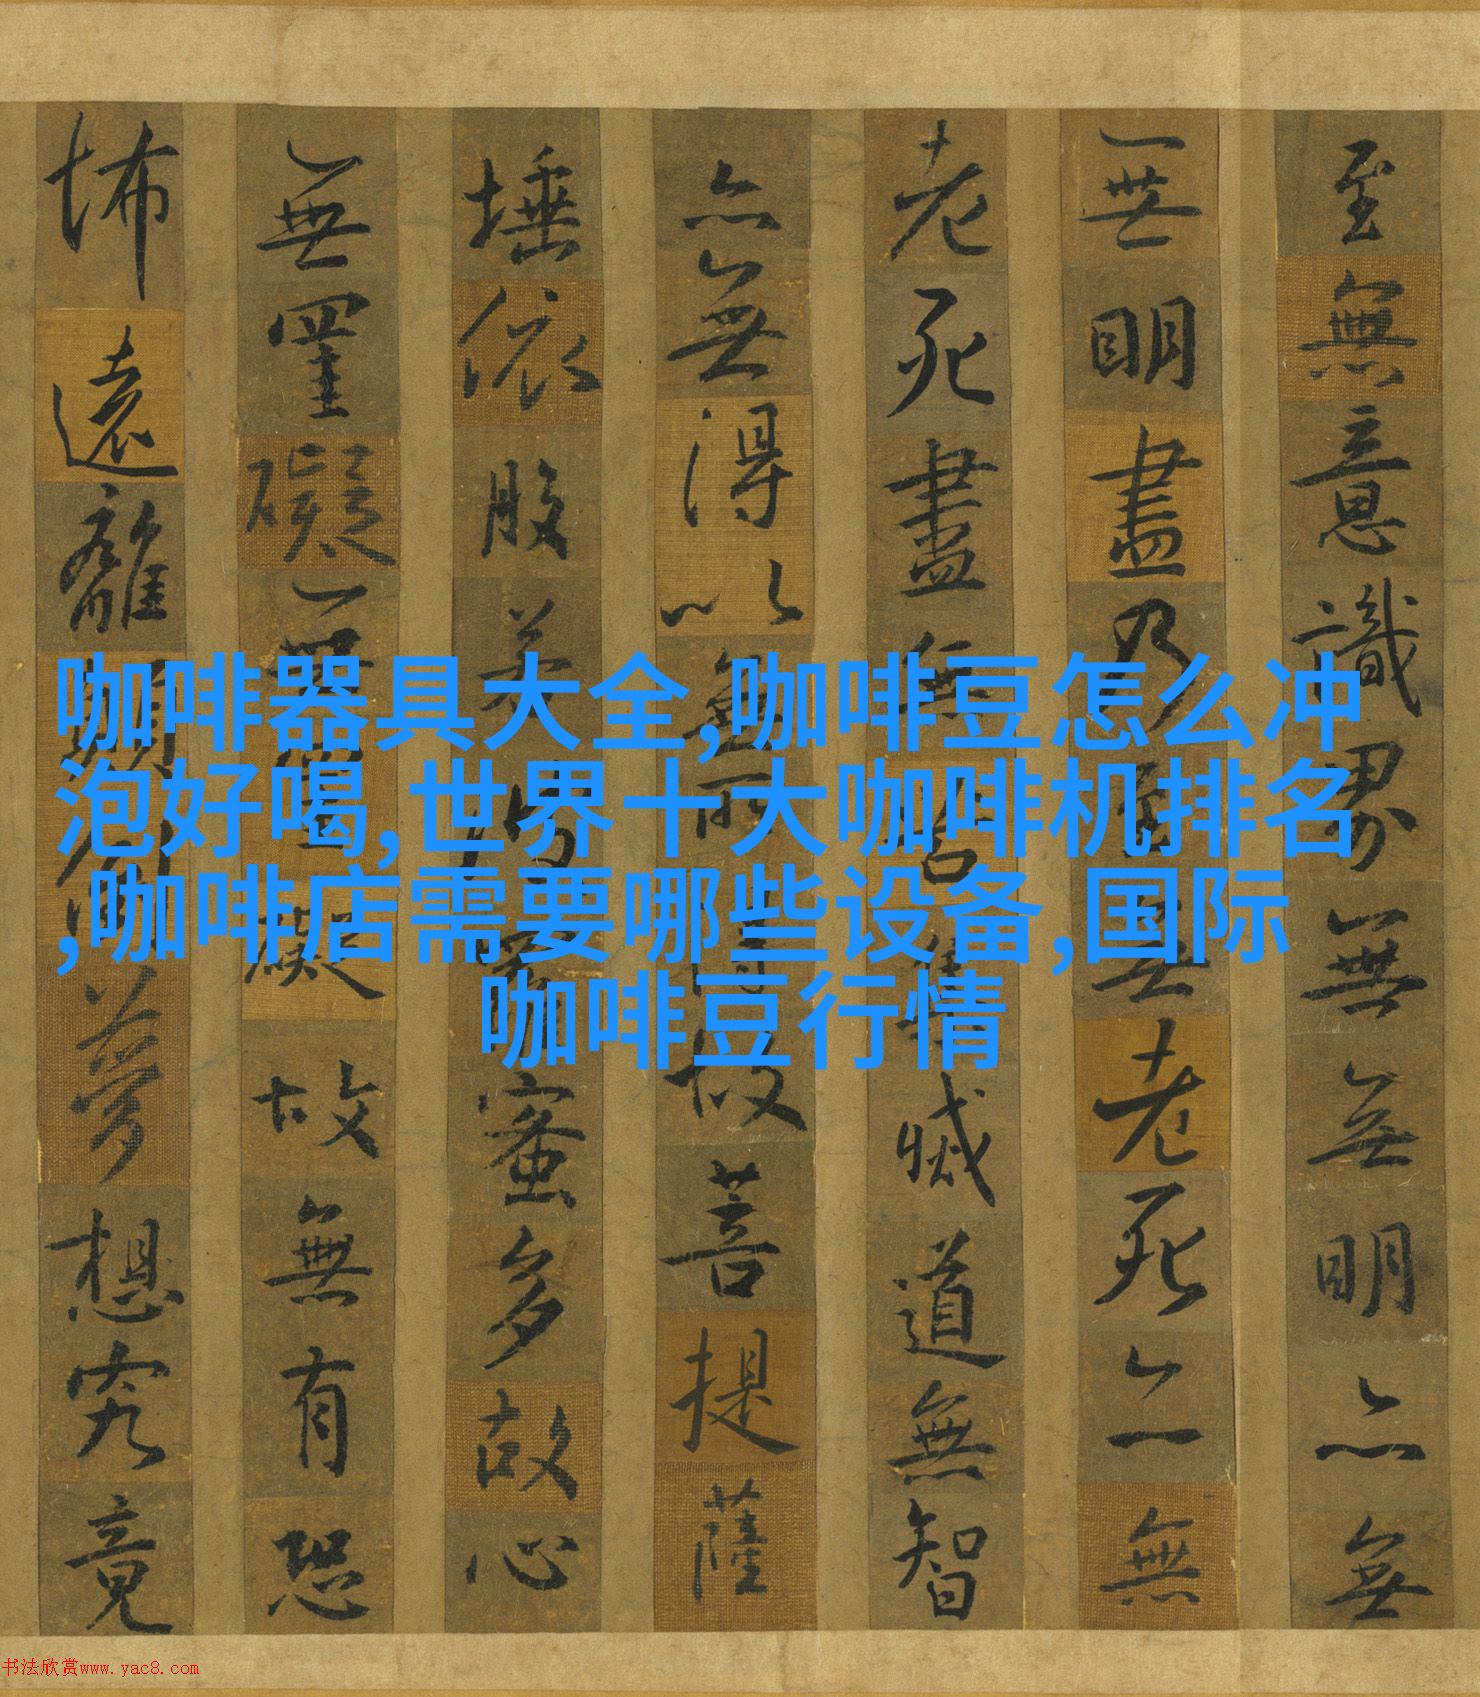 至無意識界無無明亦無
無明盡乃至無老死亦無
老死盡無苦集滅道無智
亦無得以無所得故菩提薩
埵依般若波羅蜜多故心
無罣礙無罣礙故無有恐
怖遠離顛倒夢想究竟
咖啡器具大全,咖啡豆怎么冲
泡好喝,世界十大咖啡机排名
,咖啡店需要哪些设备,国际
咖啡豆行情
书法欣赏www.yac8.com